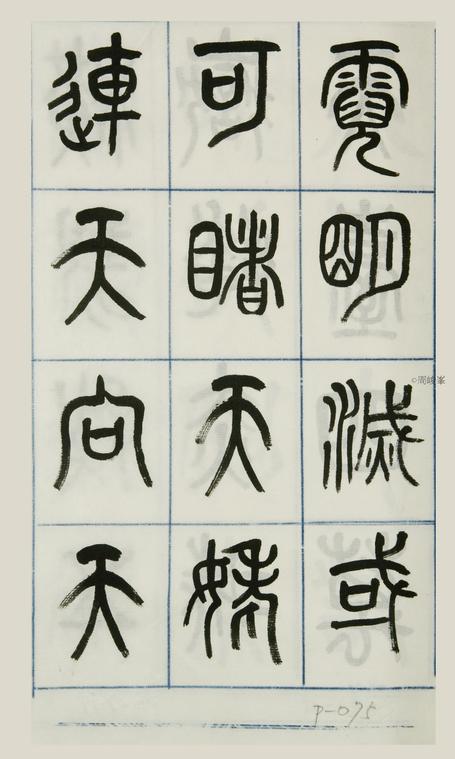 霓明滅或
可睹天姥
連天向天
©周峻峯
P-075